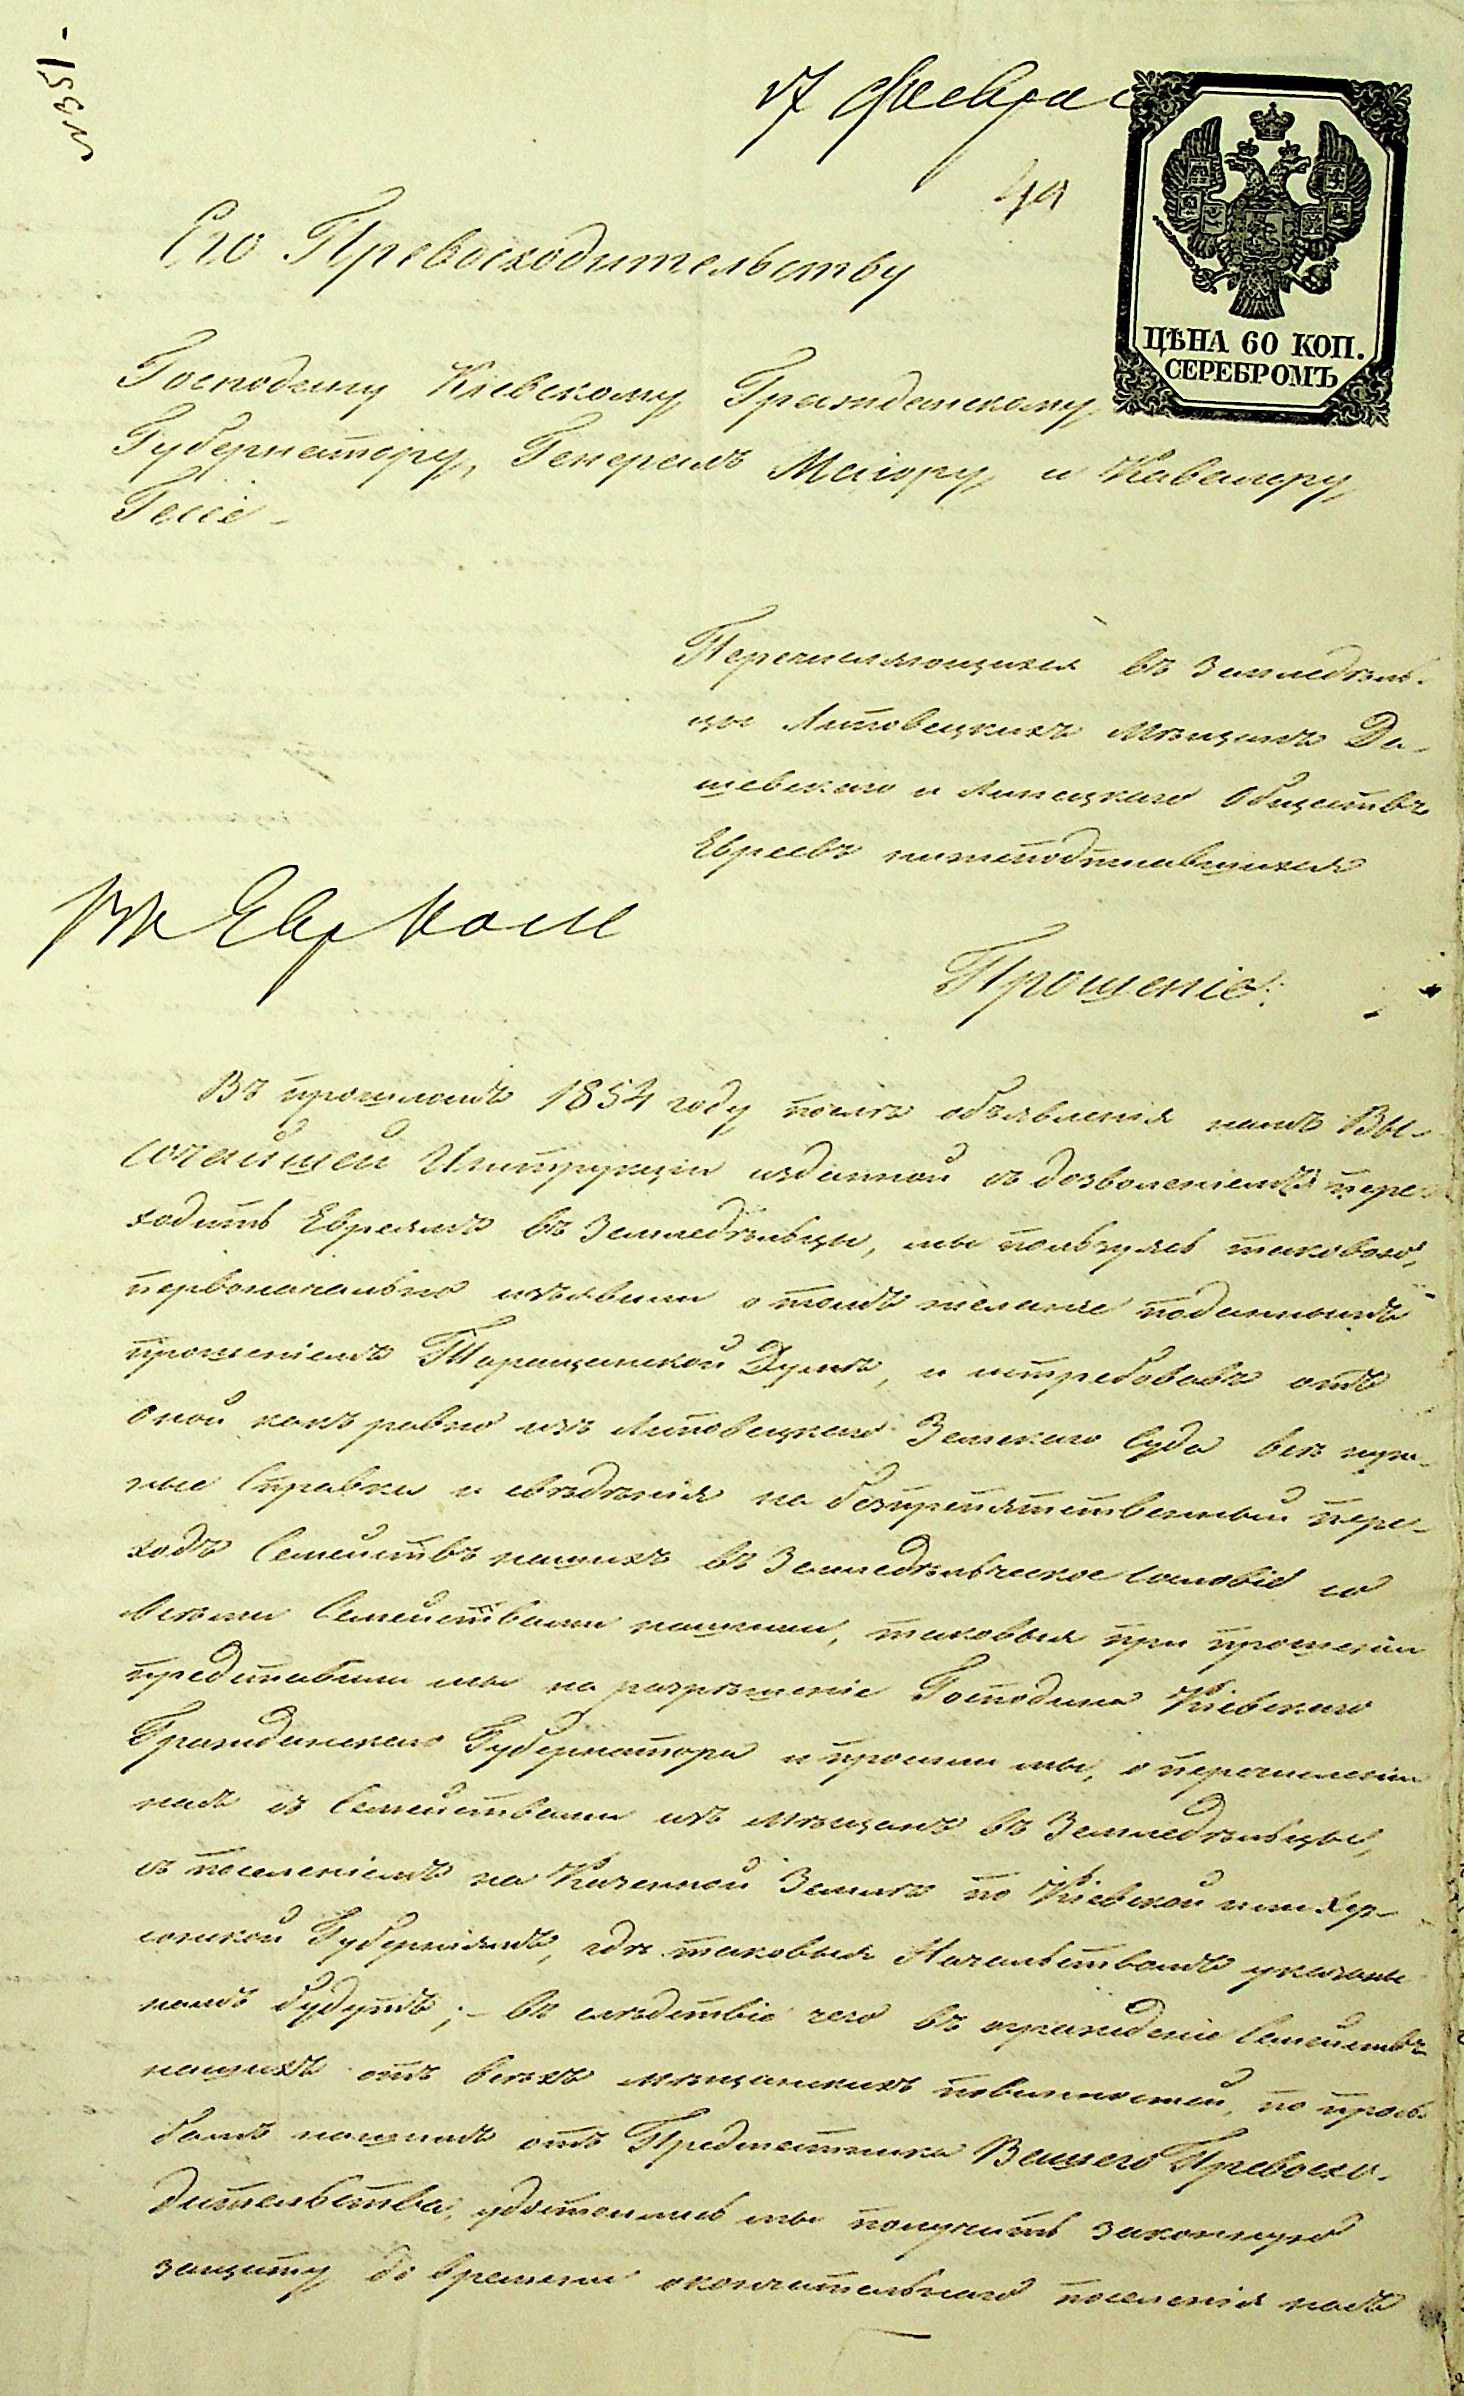 17 Февра
49
Его Превосходительству
ЦѢНА 60 КОП.
СЕРЕБРОМЪ
Господину Кіевскому Гражданскому
Губернатору, Генералъ Маіору и Кавалеру
Гессе
Перечисляющихся въ Земледѣль-
цы Липовецкихъ Мѣщанъ Да-
шевскаго и Линецкаго Обществъ
Евреевъ нижеподписавшихся
Прошеніе:
Въ прошломъ 1854 году послѣ объявленія намъ Вы-
сочайшей Инструкціи изданной съ дозволеніемъ пере
ходить Евреямъ въ Земледѣльцы, мы пользуясь таковою,
первоначально изъявили о томъ желаніе поданнымъ
прошеніемъ Таращанской Думѣ, и истребовавъ отъ
оной какъ равно изъ Липовецкаго Земскаго Суда всѣ нуж-
ные Справки и свѣдѣнія на безпрепятственный пере-
ходъ Семействъ нашихъ въ Земледѣльческое сословіе со
всѣми Семействами нашими, таковыя при прошеніи
представили мы на разрѣшеніе Господина Кіевскаго
Гражданскаго Губернатора и просили мы, о перечисленіи
насъ съ Семействами изъ Мѣщанъ въ Земледѣльцы,
съ поселеніемъ на Казенной Землѣ по Кіевской или Хер-
сонской Губерніямъ, гдѣ таковыя Начальствомъ указаны
намъ будутъ; - въ слѣдствіе чего въ огражденіе Семействъ
нашихъ отъ всѣхъ мѣщанскихъ повинностей, по прось-
бамъ нашимъ отъ Предместника Вашего Превосхо-
дительства, удостоились мы получить законную
защиту до времени окончательнаго поселенія насъ